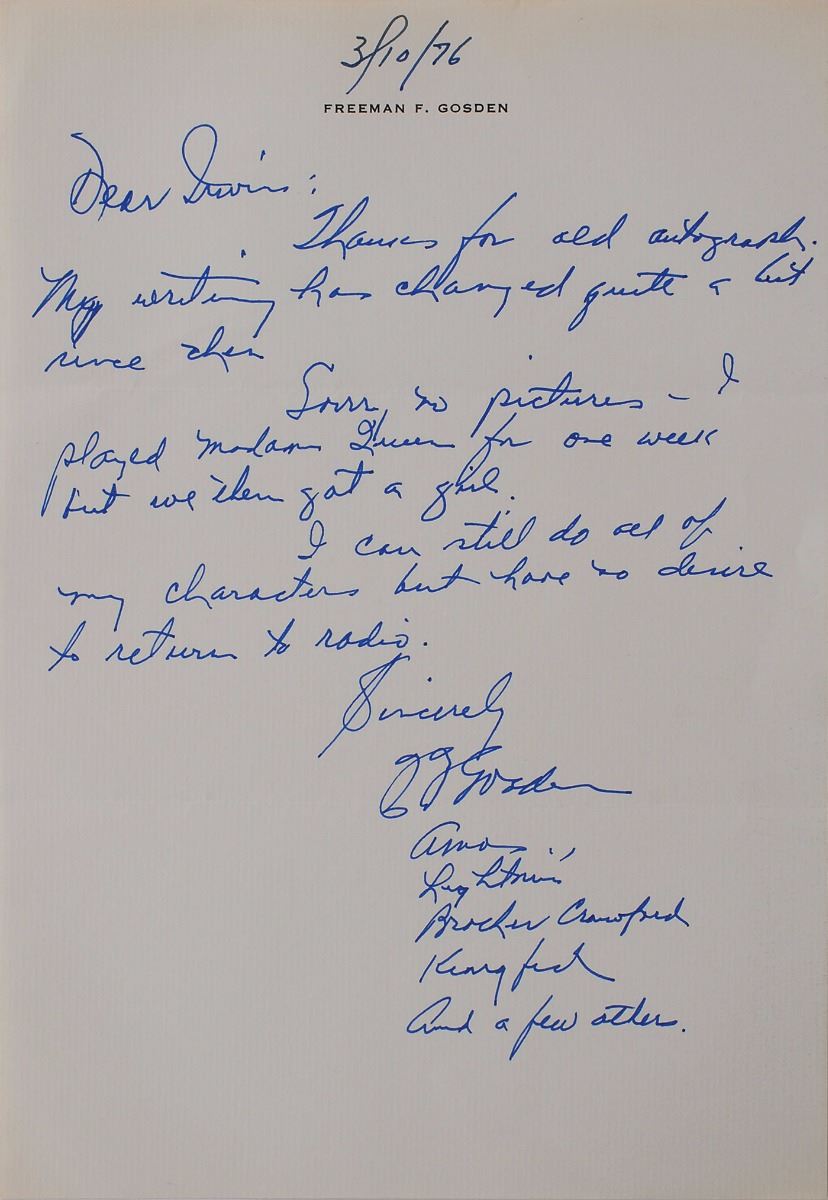 3/10/76
FREEMAN F. GOSDEN
Dear Irwin:
Thanks for old autograph.
My writing has changed quite a bit
since then
Sorry, no pictures - I
played Madam Queen for one week
but we then got a girl.
I can still do all of
my characters but have no desire
to return to radio.
Sincerely
FF Gosden
Amos
Lightnin'
Brother Crawford
Kingfish
And a few others.